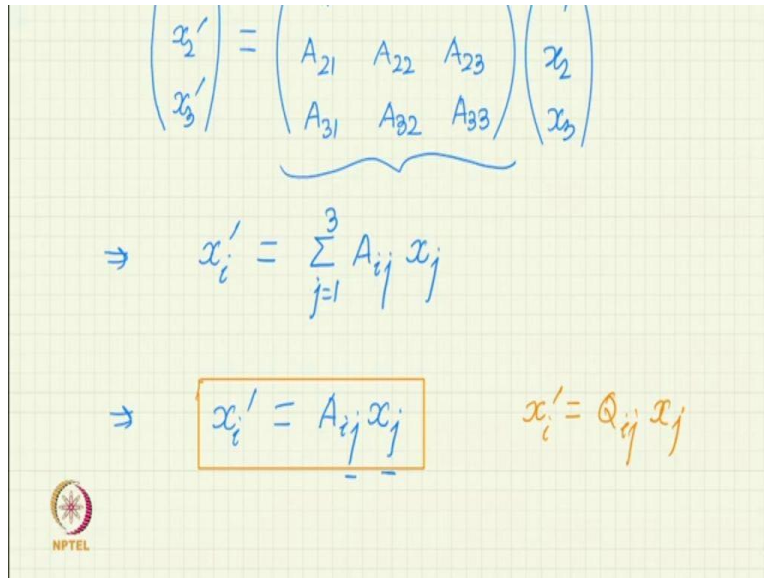 x₂′ = A₂₁ A₂₂ A₂₃ x₂
x₃′ A₃₁ A₃₂ A₃₃ x₃
⇒ xᵢ′ = ∑ⱼ₌₁³ Aᵢⱼ xⱼ
⇒ xᵢ′ = Aᵢⱼ xⱼ xᵢ′ = Qᵢⱼ xⱼ
NPTEL